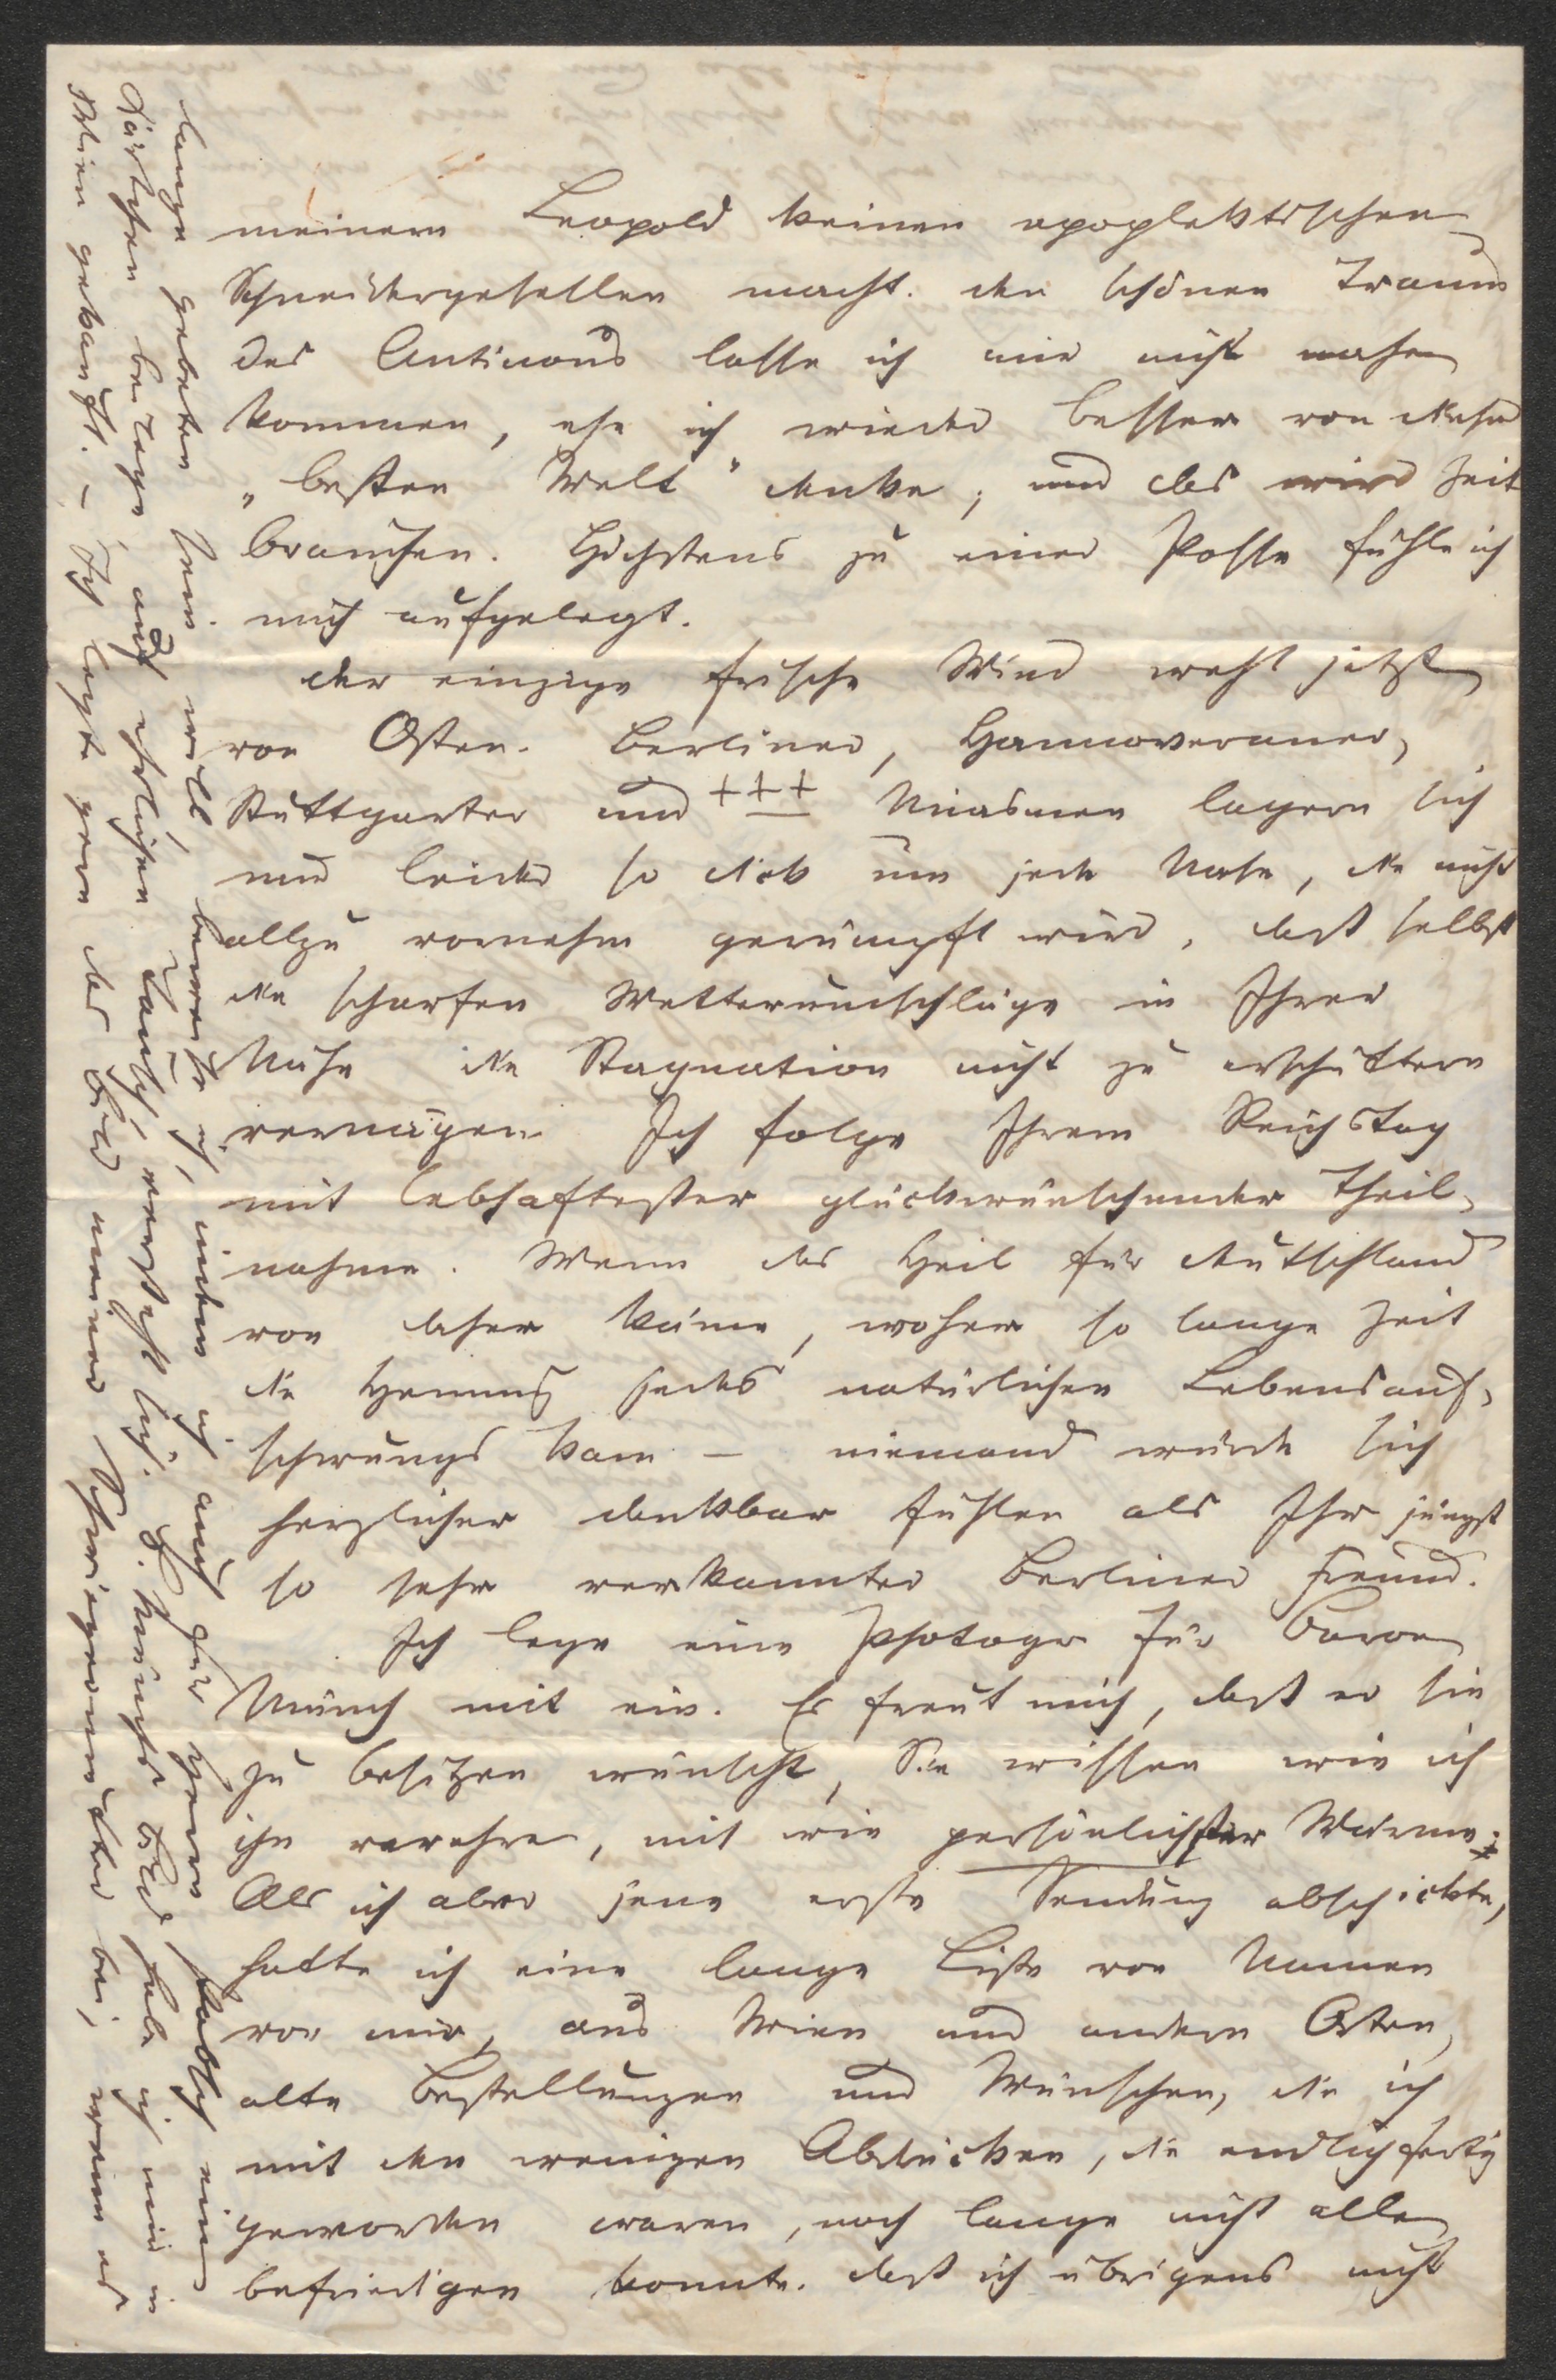 meinem Leopold keinen apoplektischen
Schneidergesellen macht. den schönen Traum
des Antinous lasse ich mir nicht nahe
kommen, ehe ich wieder besser von dieser
„besten Welt" denke, und das wird Zeit
brauchen. Höchstens zu einer Posse fühle ich
mich aufgelegt.
der einzige frische Wind weht jetzt
von Osten. Berliner, Hannoveraner,
Stuttgarter und +++ Miasmen lagern sich
nur leider so dick um jede Nase, die nicht
allzu vornehm gerümpft wird, daß selbst
die scharfen Wetterumschläge in Ihrer
Nähe die Stagnation nicht zu erschüttern
vermögen. Ich folge Ihrem Reichstag
mit lebhaftester glückwünschender Theil-
nahme. Wenn das Heil für deutschland
von daher käme, woher so lange Zeit
die Hemmung jedes natürlichen Lebensauf-
schwungs kam — niemand würde sich
herzlicher dankbar fühlen als Ihr jüngst
so sehr verkannter Berliner Freund.
Ich lege eine Photogr für Baron
Münch mit ein. Es freut mich, daß er sie
zu besitzen wünscht, Sie wissen wie ich
ihn verehre, mit wie persönlichster Wärme.
Als ich aber jene erste Sendung abschickte,
hatte ich eine lange Liste von Namen
vor mir, aus Wien und andern Orten,
alte Bestellungen und Wünschen, die ich
mit den wenigen Abdrücken, die endlich fertig
geworden waren, noch lange nicht alle
befriedigen konnte. daß ich übrigens nicht
lange gebeten sein will, beweise ich, indem ich auch für Herrn ein
Kärtchen beilege, auf ehrlichen Tausch, versteht sich. Bild habe ich mir in
Wien gekauft. — Ich legte gern das Bild meiner Schwiegermutter bei, wenn es